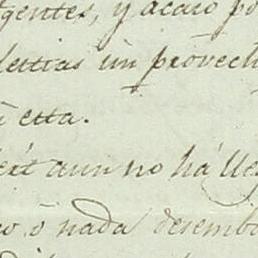 gentes, y acaso po
letras un provech
esta.
aun no há lle
o nada desemb